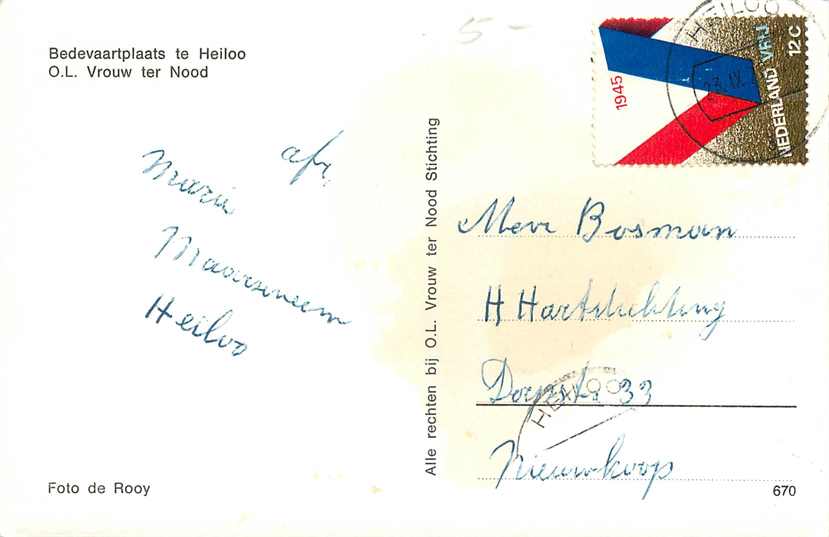 5-
Bedevaartplaats te Heiloo
O.L. Vrouw ter Nood
afz.
Maria
Heiloo
Foto de Rooy
Alle rechten bij O.L. Vrouw ter Nood Stichting
HEILOO
1945
NEDERLAND VRIJ
12 C
Mevr Bosman
H Hartstichting
Dorpstr. 33
HEILOO
Nieuwkoop
670